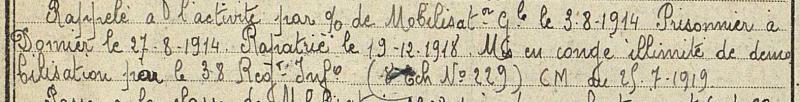 Rappelé à l'activité par % de Mobilisat.on Gle le 3-8-1914 Prisonnier à
le 27-8-1914. Rapatrié le 19-12-1918. M en congé illimité de démo
bilisation par le 38 Regt Infie (Ech No 229) CM du 25.7.1919